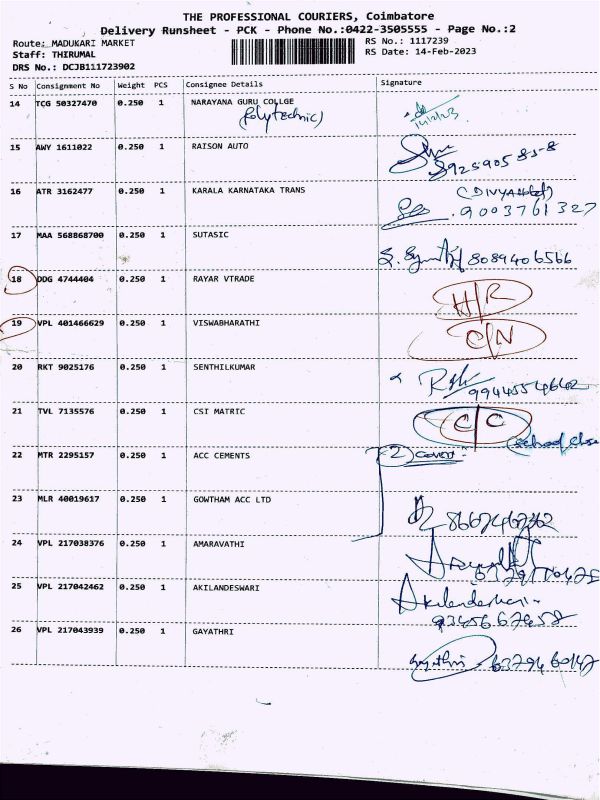 THE PROFESSIONAL COURIERS, Coimbatore
Delivery Runsheet - PCK - Phone No.:0422-3505555 - Page No.:2
Route: MADUKARI MARKET
RS No.: 1117239
Staff: THIRUMAL
RS Date: 14-Feb-2023
DRS No.: DCJB111723902
S No Consignment No Weight PCS Consignee Details Signature
14 TCG 50327470 0.250 1 NARAYANA GURU COLLGE
(polytechnic)
14/2/23
15 AWY 1611022 0.250 1 RAISON AUTO
16 ATR 3162477 0.250 1 KARALA KARNATAKA TRANS
9003761327
17 MAA 568868700 0.250 1 SUTASIC
8089406566
18 DDG 4744404 0.250 1 RAYAR VTRADE
H/R
19 VPL 401466629 0.250 1 VISWABHARATHI
C/N
20 RKT 9025176 0.250 1 SENTHILKUMAR
21 TVL 7135576 0.250 1 CSI MATRIC
C/C
School close
22 MTR 2295157 0.250 1 ACC CEMENTS
(2) cover
23 MLR 40019617 0.250 1 GOWTHAM ACC LTD
24 VPL 217038376 0.250 1 AMARAVATHI
25 VPL 217042462 0.250 1 AKILANDESWARI
26 VPL 217043939 0.250 1 GAYATHRI
Gayathri 6379460147